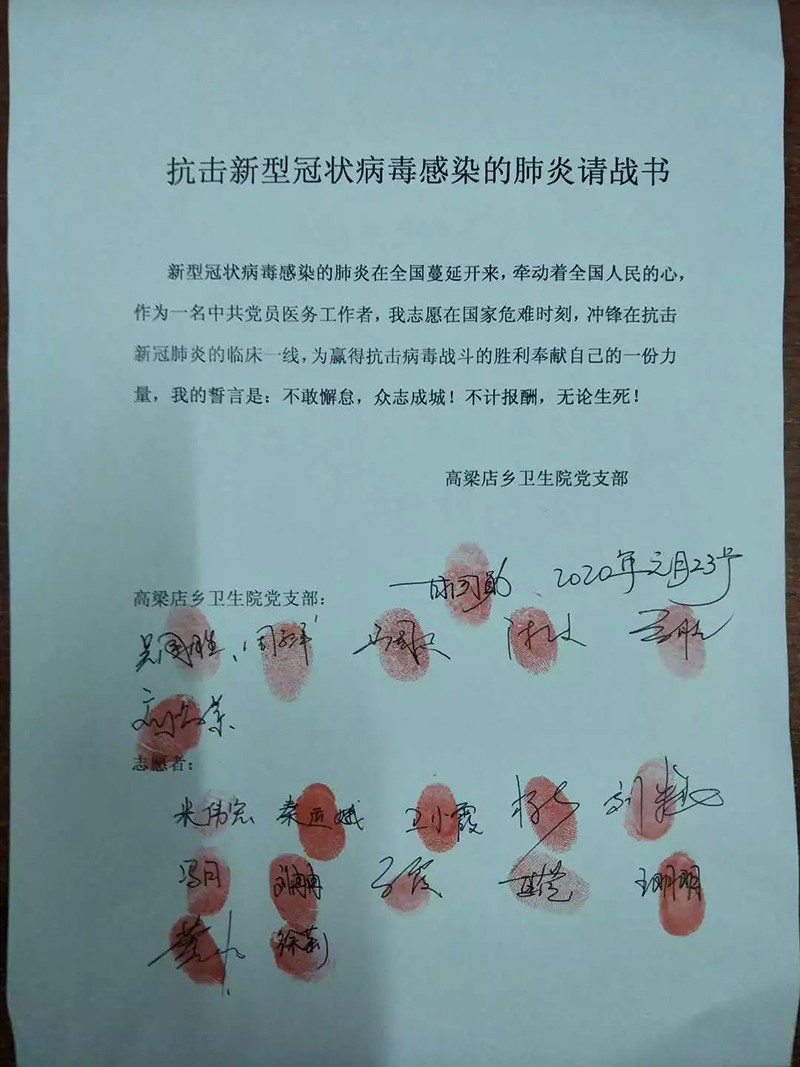 抗击新型冠状病毒感染的肺炎请战书
新型冠状病毒感染的肺炎在全国蔓延开来，牵动着全国人民的心，
作为一名中共党员医务工作者，我志愿在国家危难时刻，冲锋在抗击
新冠肺炎的临床一线，为赢得抗击病毒战斗的胜利奉献自己的一份力
量，我的誓言是：不敢懈怠，众志成城！不计报酬，无论生死！
高梁店乡卫生院党支部
2020年元月23号
高梁店乡卫生院党支部：
吴国胜
志愿者：
米伟宏 秦亚斌 王小霞
冯月 刘冉冉 王明明
徐莉